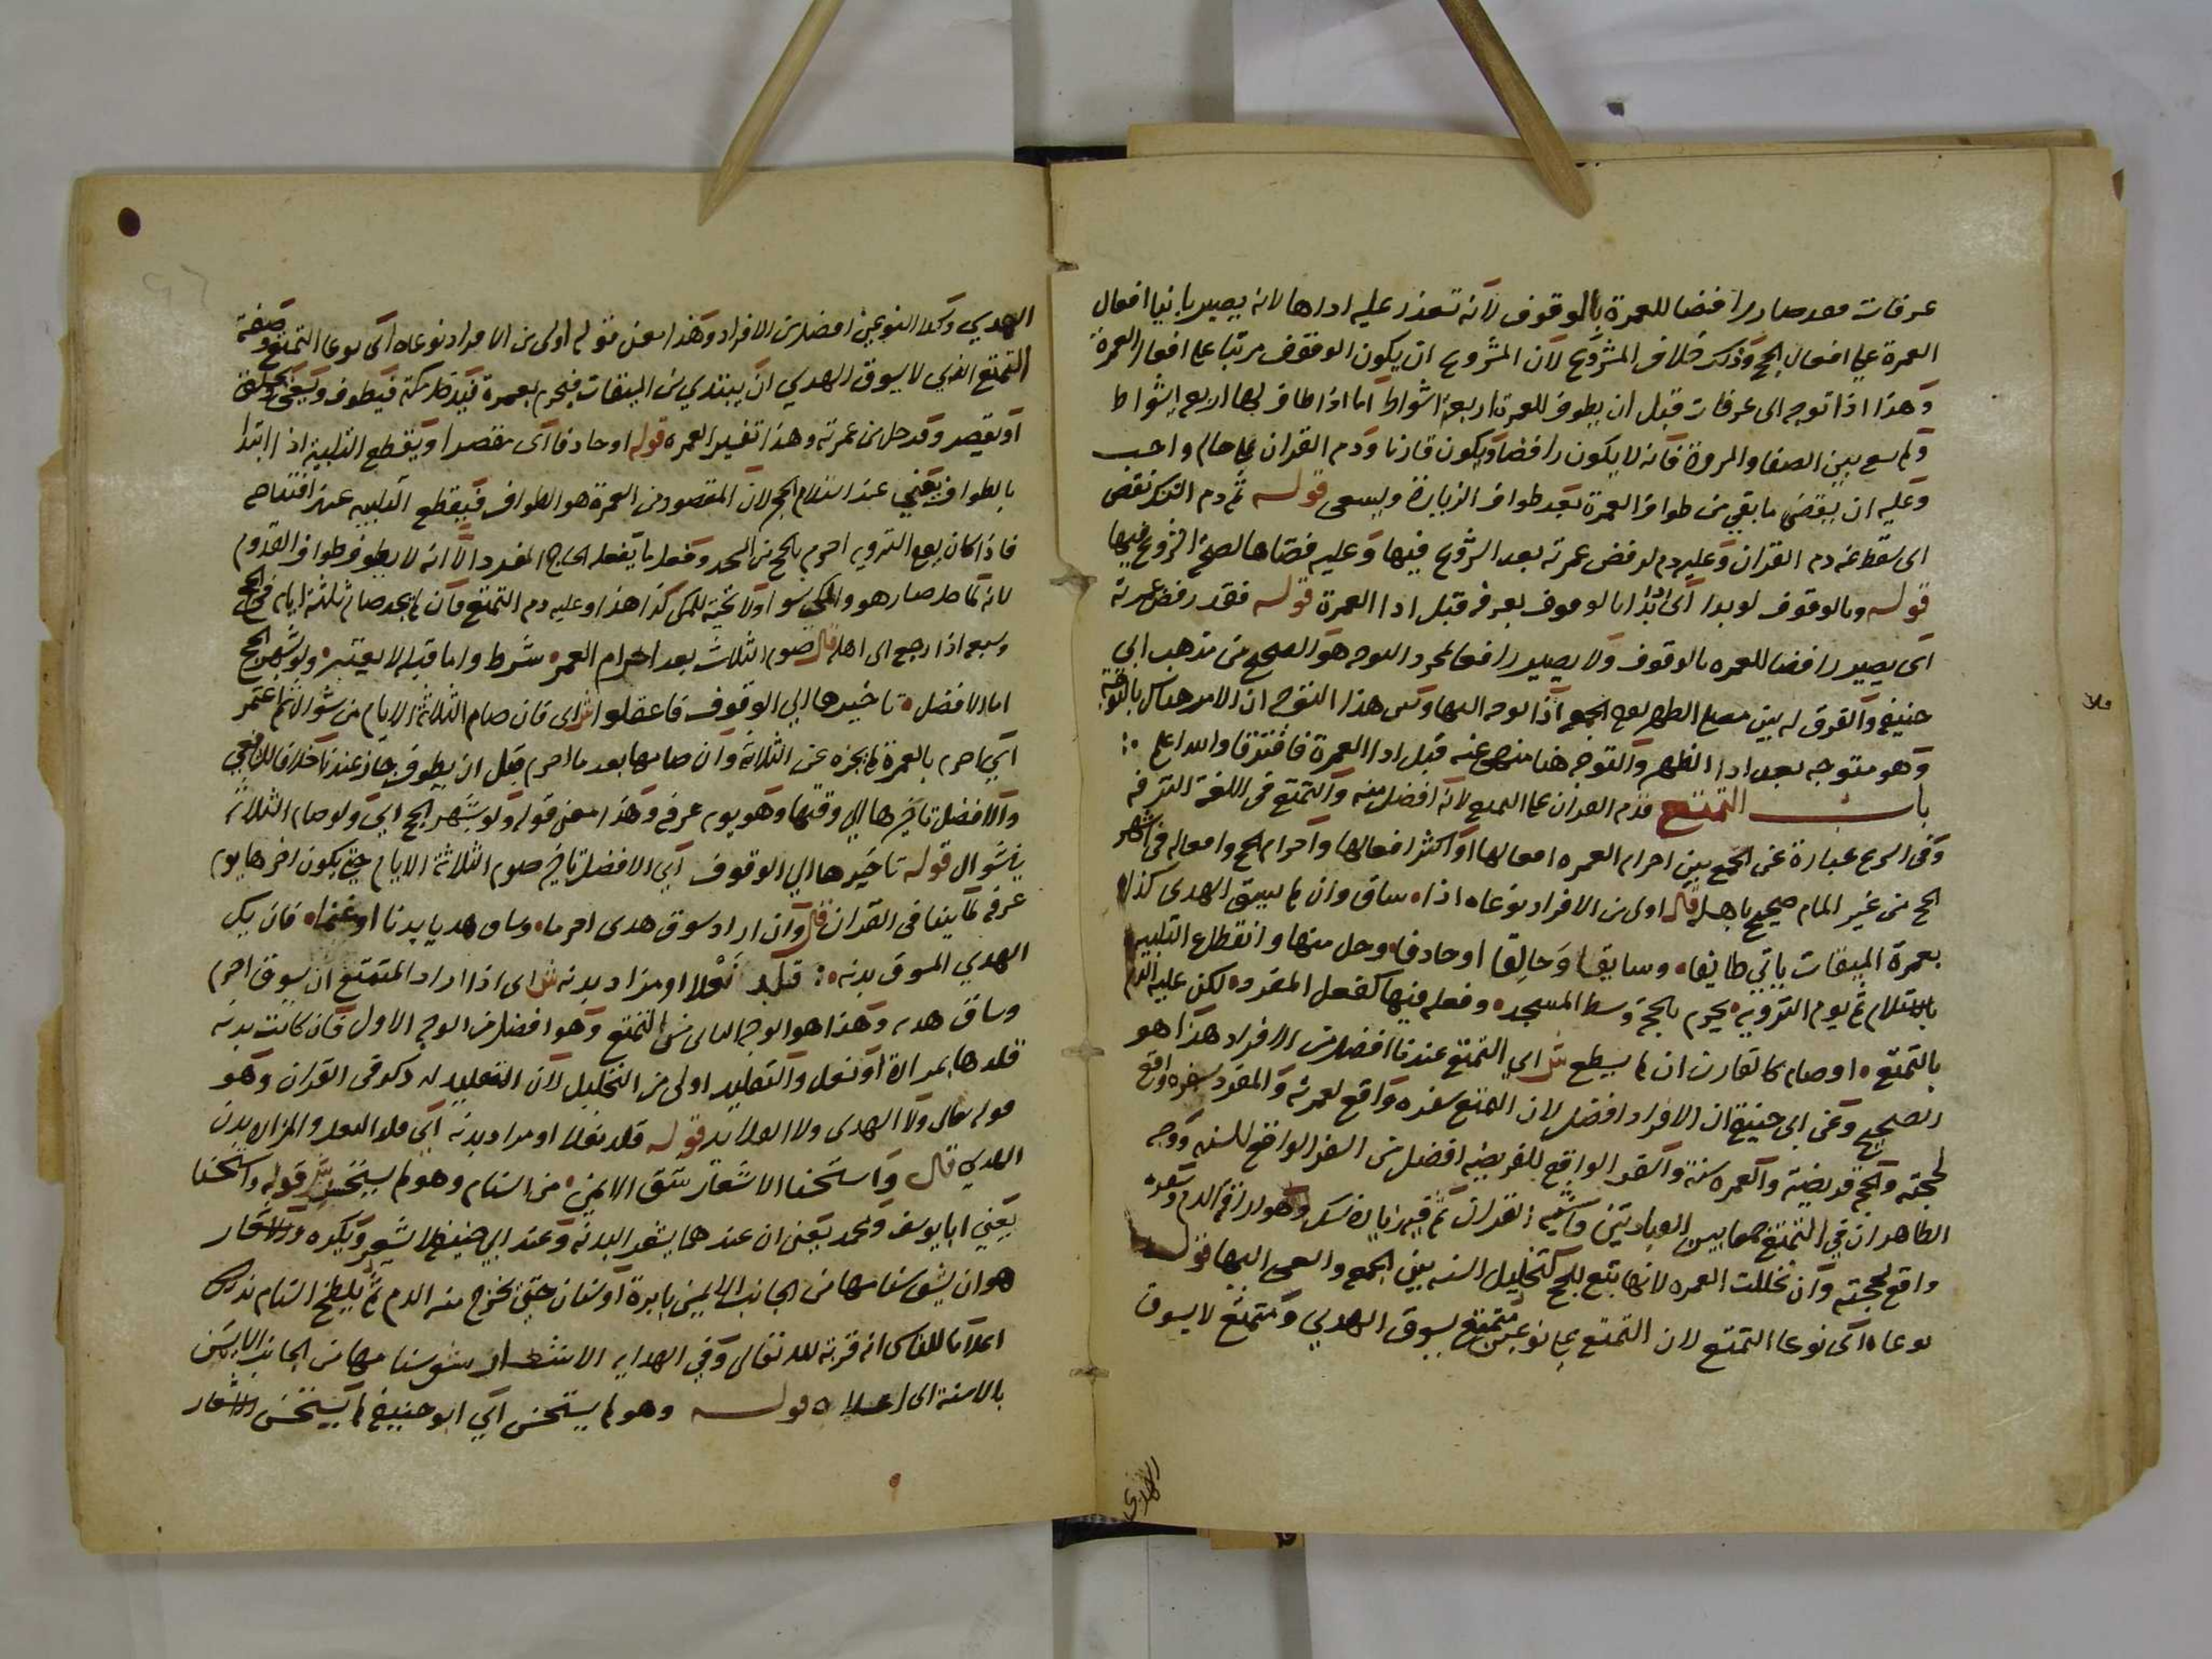 عرفات فقد صار رافضا للعمرة بالوقوف لانه تعذر عليه اداها لانه يصير بانيا افعال
العمرة علي افعال الحج وذلك خلاف المشروع لان المشروع ان يكون الوقوف مرتبا على افعال العمرة
وهذا اذا توجه الى عرفات قبل ان يطوف للعمرة اربعة اشواط اما اذا طاف لها اربعه اشواط
ولم يسع بين الصفا والمروة فانه لا يكون رافضا ويكون قارنا ودم القران على حاله واجب
وعليه ان يقضي ما بقي من طواف العمرة بعد طواف الزيارة ويسعى قوله ثم دم النسك نقض
اى سقط عنه دم القران وعليه دم لرفض عمرته بعد الشروع فيها وعليه قضاها لصحة الشروع فيها
قوله وبالوقوف لو بدا اى ابتدا بالوقوف بعرفه قبل ادا العمرة قوله فقد رفض عمرته
اى يصير رافضا للعمره بالوقوف ولا يصير رافضا بمجرد التوجه هو الصحيح من مذهب ابي
حنيفه والفرق له بين مصلي الظهر يوم الجمعه اذا توجه اليها وبين هذا التوجه ان الامر هناك بالتوجه
وهو متوجه بعد ادا الظهر والتوجه هنا منهى عنه قبل ادا العمرة فافترقا والله اعلم
باب التمتع قدم القران على التمتع لانه افضل منه والتمتع فى اللغة الترفه
وفى الشرع عبارة عن الجمع بين احرام العمره افعالها او اكثر افعالها واحرام الحج وافعاله فى اشهر
الحج من غير المام صحيح باهله قال اولى من الافراد نوعاه اذا ساق وان لم يسق الهدى كذا
بعمرة الميقات ياتي طايفا وسايقا وحالقا او حادفا وحل منها وانقطاع التلبيه
باستلام ثم يوم الترويه يحرم بالحجة وسط المسجد وفعله فيها كفعل المفرد لكن عليه الدم
بالتمتع اوصام كالقارن ان لم يسطع ش اي التمتع عندنا افضل من الافراد هذا هو
الصحيح وعن ابى حنيفة ان الافراد افضل لان المتمتع سفره واقع لعمرته والمفرد سفره واقع
لحجته والحج فريضة والعمره سنة والسفر الواقع للفريضه افضل من السفر الواقع للسنه ووجه
الظاهر ان في التمتع جمعا بين العبادتين فاشبه القران ثم فيه زيادة نسك وهو اراقة الدم وسفره
واقع لحجته وان تخللت العمره لانها تبع للحج كتخليل السنه بين الجمعه والسعى اليها قوله
نوعاه اى نوعا التمتع لان التمتع على نوعين متمتع يسوق الهدي ومتمتع لا يسوق
الهدي
الهدي وكلا النوعين افضل من الافراد وهذا معنى قوله اولى من الافراد نوعاه اى نوعا التمتع وصفة
التمتع الذي لا يسوق الهدي ان يبتدي من الميقات فيحرم بعمرة فيدخل مكة فيطوف ويسعى ويحلق
او يقصر وقد حل من عمرته وهذا تفسير العمره قوله او حادفا اى مقصرا ويقطع التلبية اذا ابتدا
بالطواف يعني عند استلام الحجر لان المقصود من العمرة هو الطواف فيقطع التلبيه عند افتتاحه
فاذا كان يوم الترويه احرم بالحج من المسجد وفعل ما يفعله الحاج المفرد الا انه لا يطوف طواف القدوم
لانه لما حل صار هو والمكي سوا ولا تحية للمكى كذا هذا وعليه دم التمتع فان لم يجد صام ثلثة ايام في الحج
وسبعه اذا رجع الى اهله قال صوم الثلاث بعد احرام العمره شرط وما قبله لا يعتبر ولو بشهر الحج
اما الافضل تاخيرها الي الوقوف فاعقلوا ش اى فان صام الثلاثة الايام من شوال ثم اعتمر
اي احرم بالعمرة لم يجزه عن الثلاثة وان صامها بعد ما احرم قبل ان يطوف جاز عندنا خلافا للشافعي
والافضل تاخيرها الي وقتها وهو يوم عرفه وهذا معنى قوله ولو بشهر الحج اي ولو صام الثلاثة
فى شوال قوله تاخيرها الي الوقوف اي الافضل تاخير صوم الثلاثة الايام حتي يكون اخرها يوم
عرفه كما بينا فى القران قال وان اراد سوق هدى احرما وساق هديا بدنا او غنما فان يكن
الهدي المسوق بدنه قلد نعلا او مزاد بدنه ش اى اذا اراد المتمتع ان يسوق احرم
وساق هديه وهذا هو الوجه الثانى من التمتع وهو افضل من الوجه الاول فان كانت بدنه
قلدها بمزادة او نعل والتقليد اولى من التجليل لان التقليد له ذكر فى القران وهو
قوله تعالى ولا الهدى ولا القلايد قوله قلد نعلا او مزاد بدنه اي قلد النعل والمزاد بدن
الهدي قال واستحسنا الاشعار شق الايمن من السنام وهو لم يستحسن ش قوله واستحسنا
يعني ابا يوسف ومحمد يعنى ان عندهما يشعر البدنه وعند ابي حنيفه لا يشعر ويكره والاشعار
هو ان يشق سنامها من الجانب الايمن بابرة او سنان حتى يخرج منه الدم ثم يلطخ السنام بذلك
اعلاما للناس انه قربة لله تعالى وفي الهدايه الاشعار شق سنامها من الجانب الايمن
بالاسنة الى اعلاه قوله وهو لم يستحسن اي ابو حنيفه لم يستحسن الاشعار